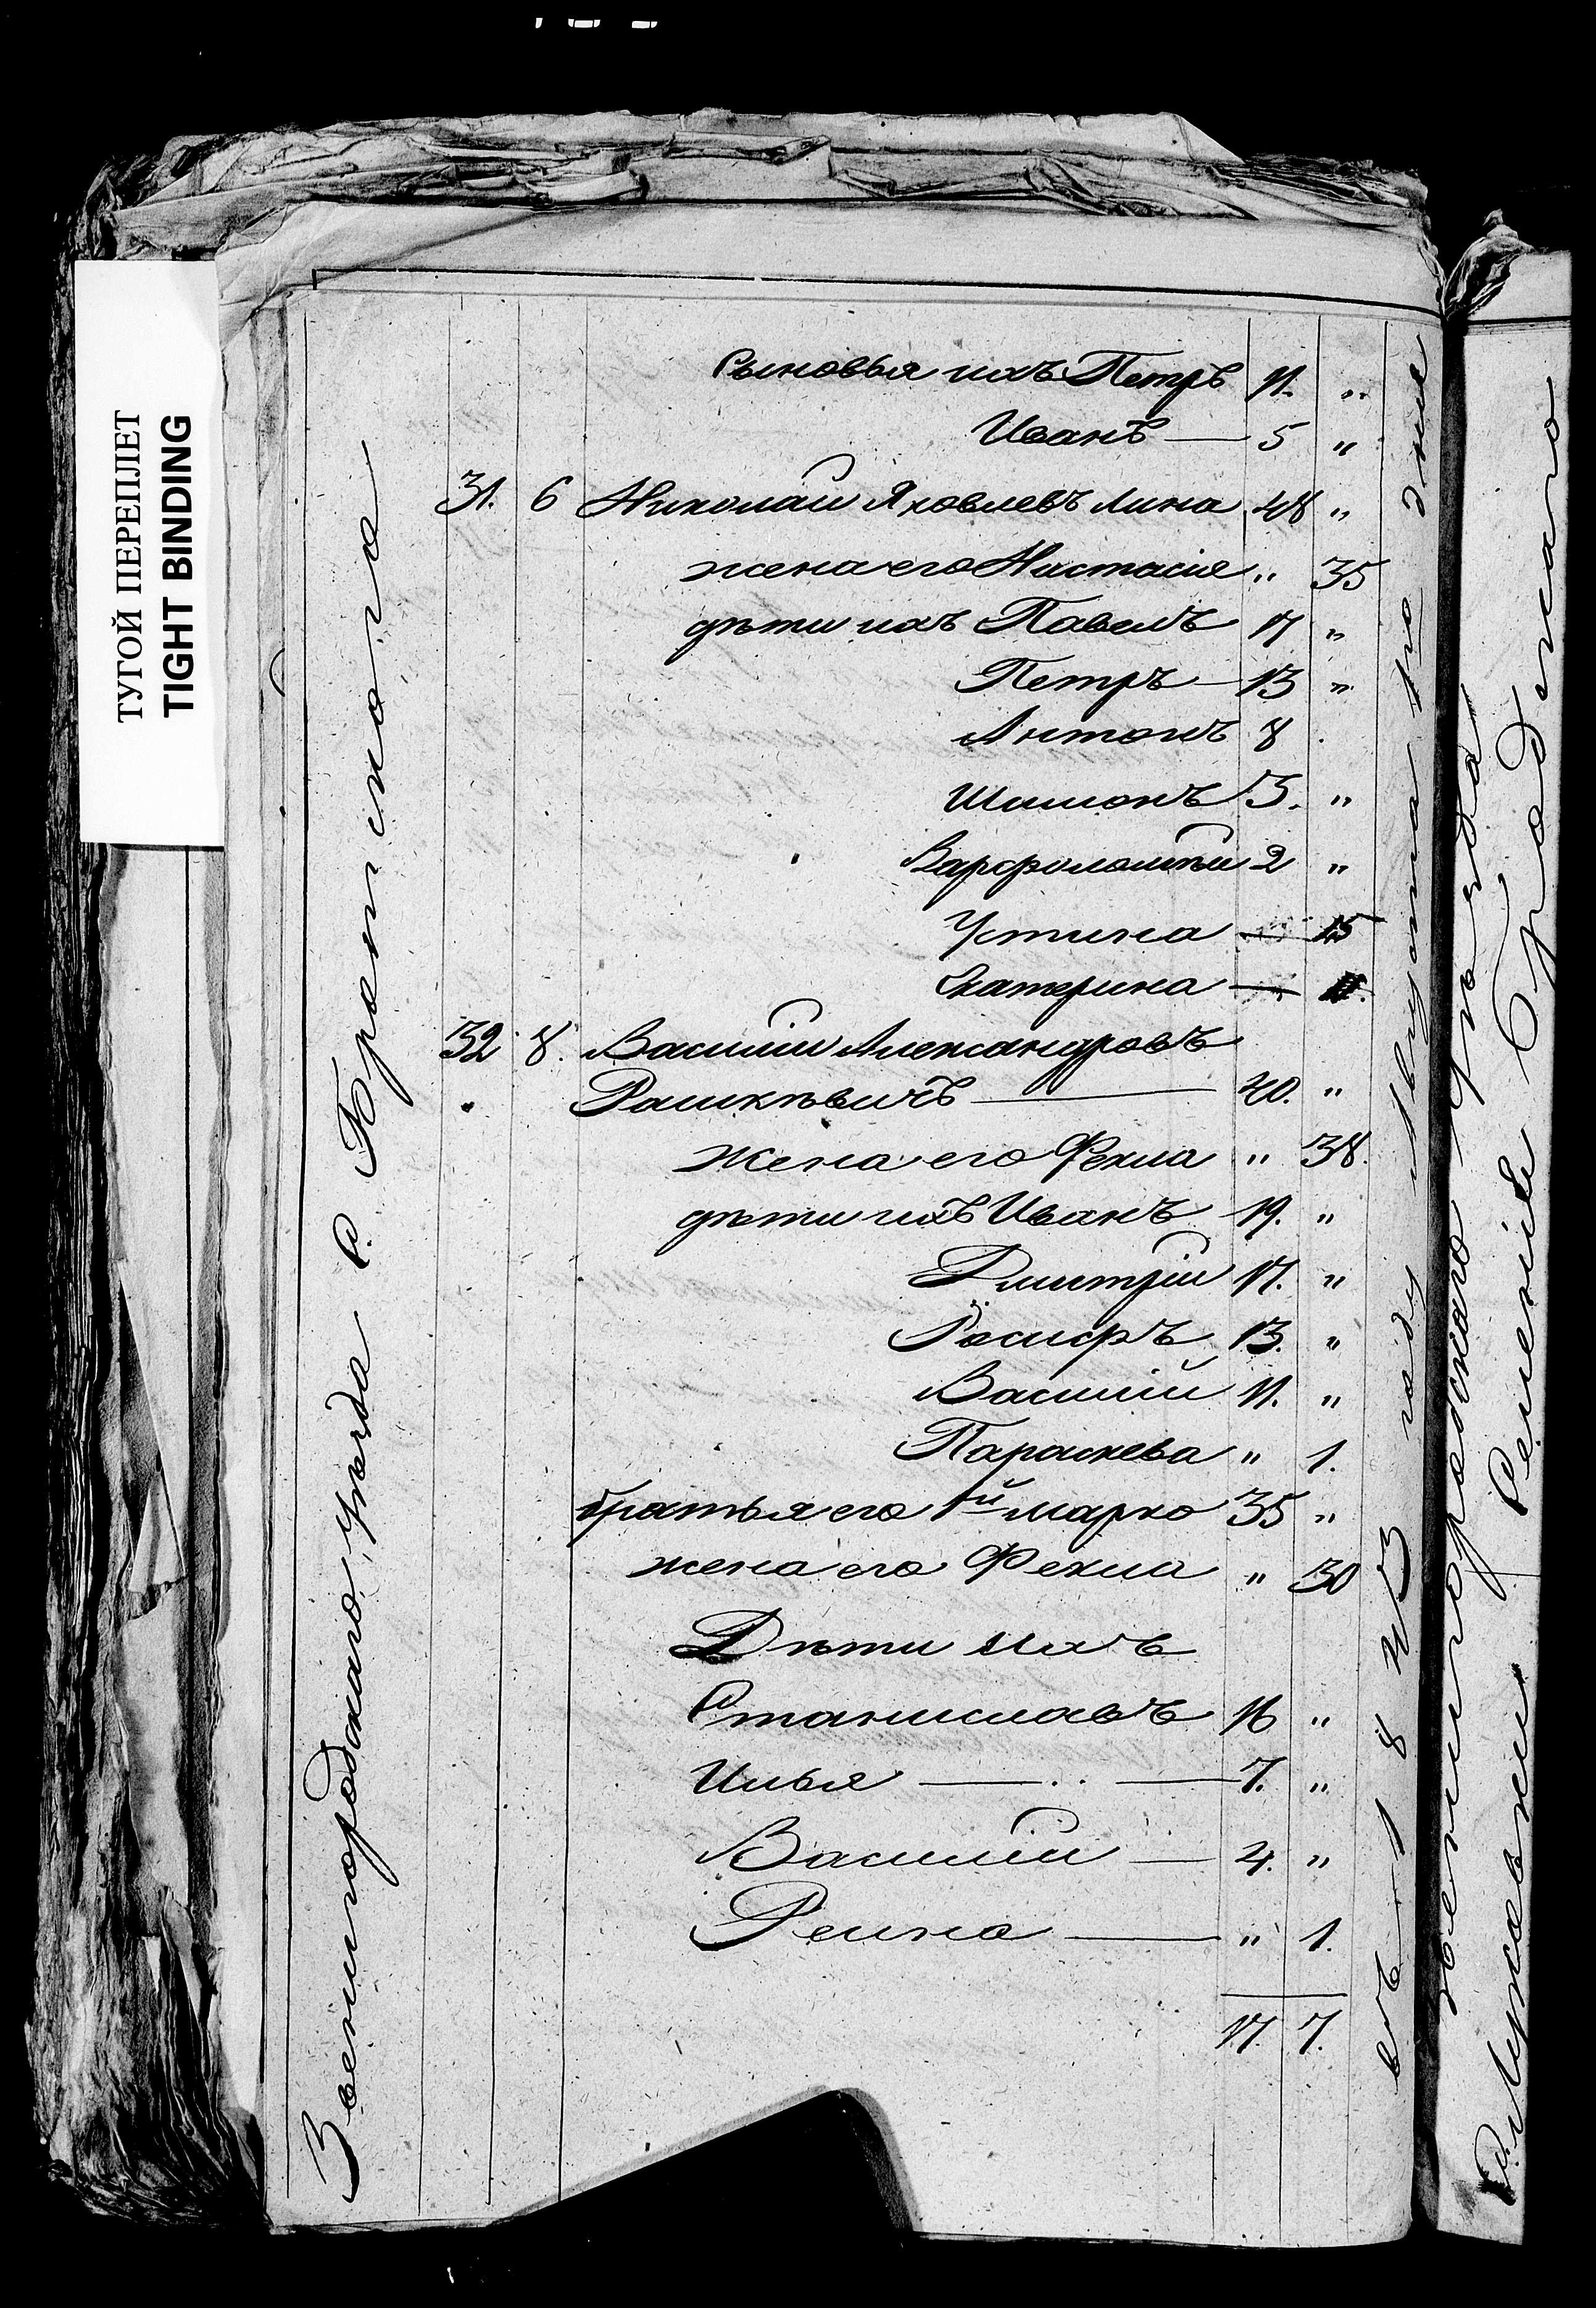 ТУГОЙ ПЕРЕПЛЕТ
TIGHT BINDING
Звенигородскаго уѣзда с.
Сыновья ихъ Петръ 11. "
Иванъ — 5 "
31. 6 Николай Яковлевъ Лина 48 "
жена его Настасiя " 35
дѣти ихъ Павелъ 17 "
Петръ — 13 "
Антонъ 8
Шимонъ 5. "
Варфоломѣй 2 "
Устина — 15
Екатерина —
32 8. Василiй Александровъ
Рашкѣвичъ — 40. "
жена его Фекла " 38.
дѣти ихъ Иванъ 19. "
Дмитрiй 17. "
Iосифъ 13. "
Василiй 11. "
Параскева " 1.
братья его 1й Марко 35 "
жена его Фекла " 30
Дѣти ихъ
Станиславъ 16 "
Илья — 7. "
Василiй — 4. "
Регина — " 1.
17. 7.
въ 18 году Августа 1го дня
Звенигородскаго уѣзда